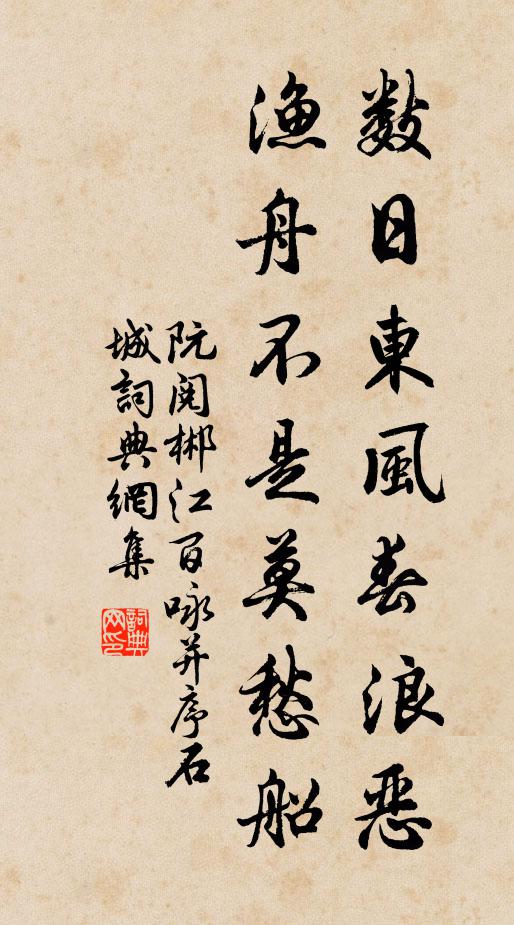 數日東風春浪惡
漁舟不是莫愁船
阮閱郴江百咏并序石
城詞典網集
詞典網印